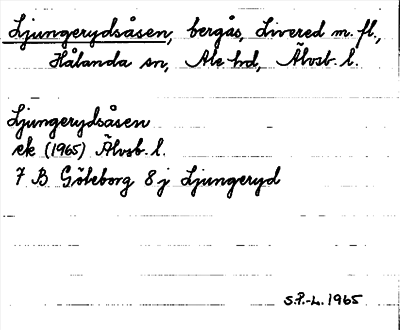 Ljungerydsåsen, bergås, Livered m. fl.,
Hålanda sn, Ale hd, Älvsb. l.
Ljungerydsåsen
ek (1965) Älvsb. l.
7 B Göteborg 8 j Ljungeryd
S.P.-L. 1965